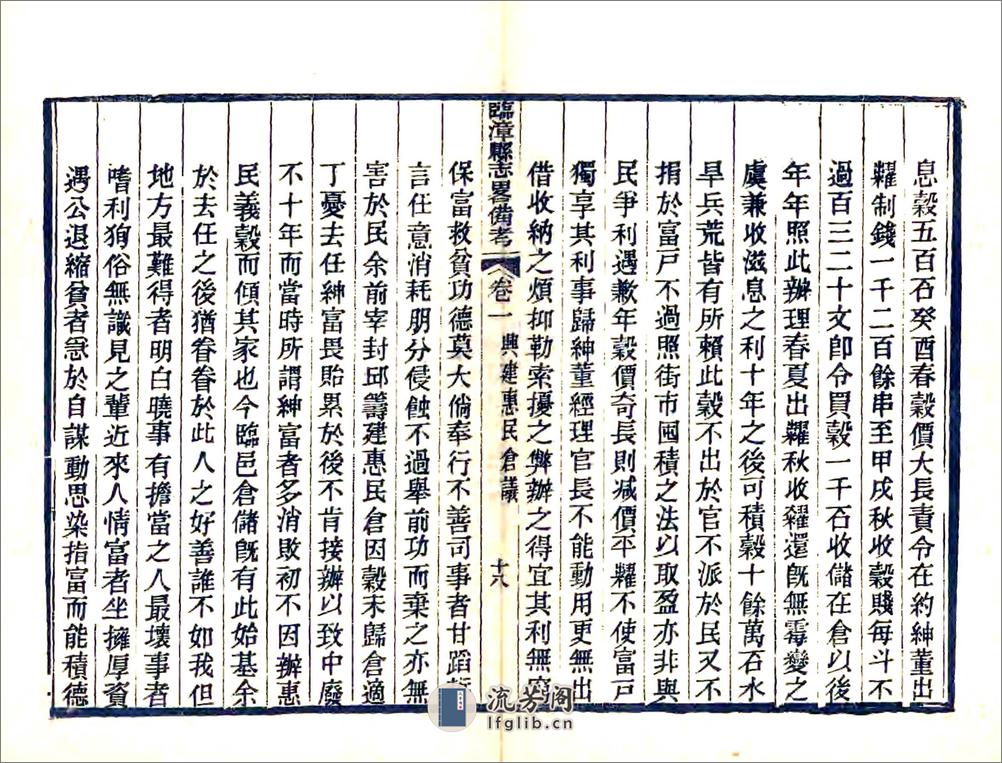 息穀五百石癸酉春穀價大長責令在約紳董出
糶制錢一千二百餘串至甲戌秋收穀賤每斗不
過百三二十文卽令買穀一千石收儲在倉以後
年年照此辦理春夏出糶秋收糴還旣無霉變之
虞兼收滋息之利十年之後可積穀十餘萬石水
旱兵荒皆有所賴此穀不出於官不派於民又不
捐於富戸不過照街市囤積之法以取盈亦非與
民爭利遇歉年穀價奇長則減價平糶不使富戸
獨享其利事歸紳董經理官長不能動用更無出
借收納之煩抑勒索擾之弊辦之得宜其利無窮
臨漳縣志畧備考 卷一 興建惠民倉議 十八
保富救貧功德莫大倘奉行不善司事者甘蹈
言任意消耗朋分侵蝕不過舉前功而棄之亦無
害於民余前宰封邱籌建惠民倉因穀未歸倉適
丁憂去任紳富畏貽累於後不肯接辦以致中廢
不十年而當時所謂紳富者多消敗初不因辦惠
民義穀而傾其家也今臨邑倉儲旣有此始基余
於去任之後猶眷眷於此人之好善誰不如我但
地方最難得者明白曉事有擔當之人最壞事者
嗜利狥俗無識見之輩近來人情富者坐擁厚資
遇公退縮貧者急於自謀動思染指富而能積德
流芳阁
lfglib.cn